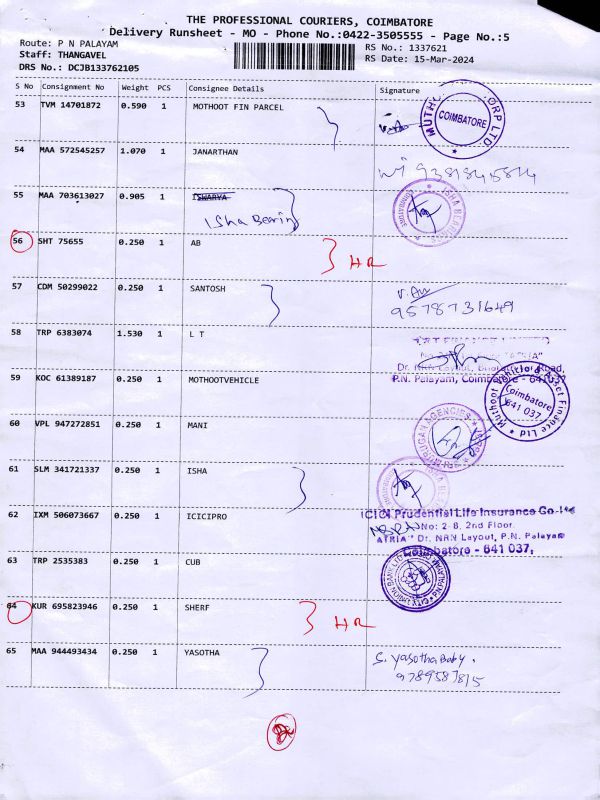 THE PROFESSIONAL COURIERS, COIMBATORE
Delivery Runsheet - MO - Phone No.:0422-3505555 - Page No.:5
Route: P N PALAYAM
Staff: THANGAVEL
DRS No.: DCJB133762105
RS No.: 1337621
RS Date: 15-Mar-2024
S No Consignment No Weight PCS Consignee Details Signature
53 TVM 14701872 0.590 1 MOTHOOT FIN PARCEL
COIMBATORE
54 MAA 572545257 1.070 1 JANARTHAN
55 MAA 703613027 0.905 1 ISWARYA
Isha Bearing
ISHA BEARINGS
56 SHT 75655 0.250 1 AB
HR
57 CDM 50299022 0.250 1 SANTOSH
9578731649
58 TRP 6383074 1.530 1 L T
Dr. NRN Layout, Bharathiar Road,
P.N. Palayam, Coimbatore - 641 037
59 KOC 61389187 0.250 1 MOTHOOTVEHICLE
Muthoot Vehicle & Asset Finance Ltd
Coimbatore
641 037
60 VPL 947272851 0.250 1 MANI
MURUGAN AGENCIES
61 SLM 341721337 0.250 1 ISHA
62 IXM 506073667 0.250 1 ICICIPRO
ICICI Prudential Life Insurance Co
No: 2-8, 2nd Floor.
ATRIA" Dr. NRN Layout, P.N. Palayam
Coimbatore - 641 037,
63 TRP 2535383 0.250 1 CUB
64 KUR 695823946 0.250 1 SHERF
HR
65 MAA 944493434 0.250 1 YASOTHA
S. Yasotha Baby.
9789587815